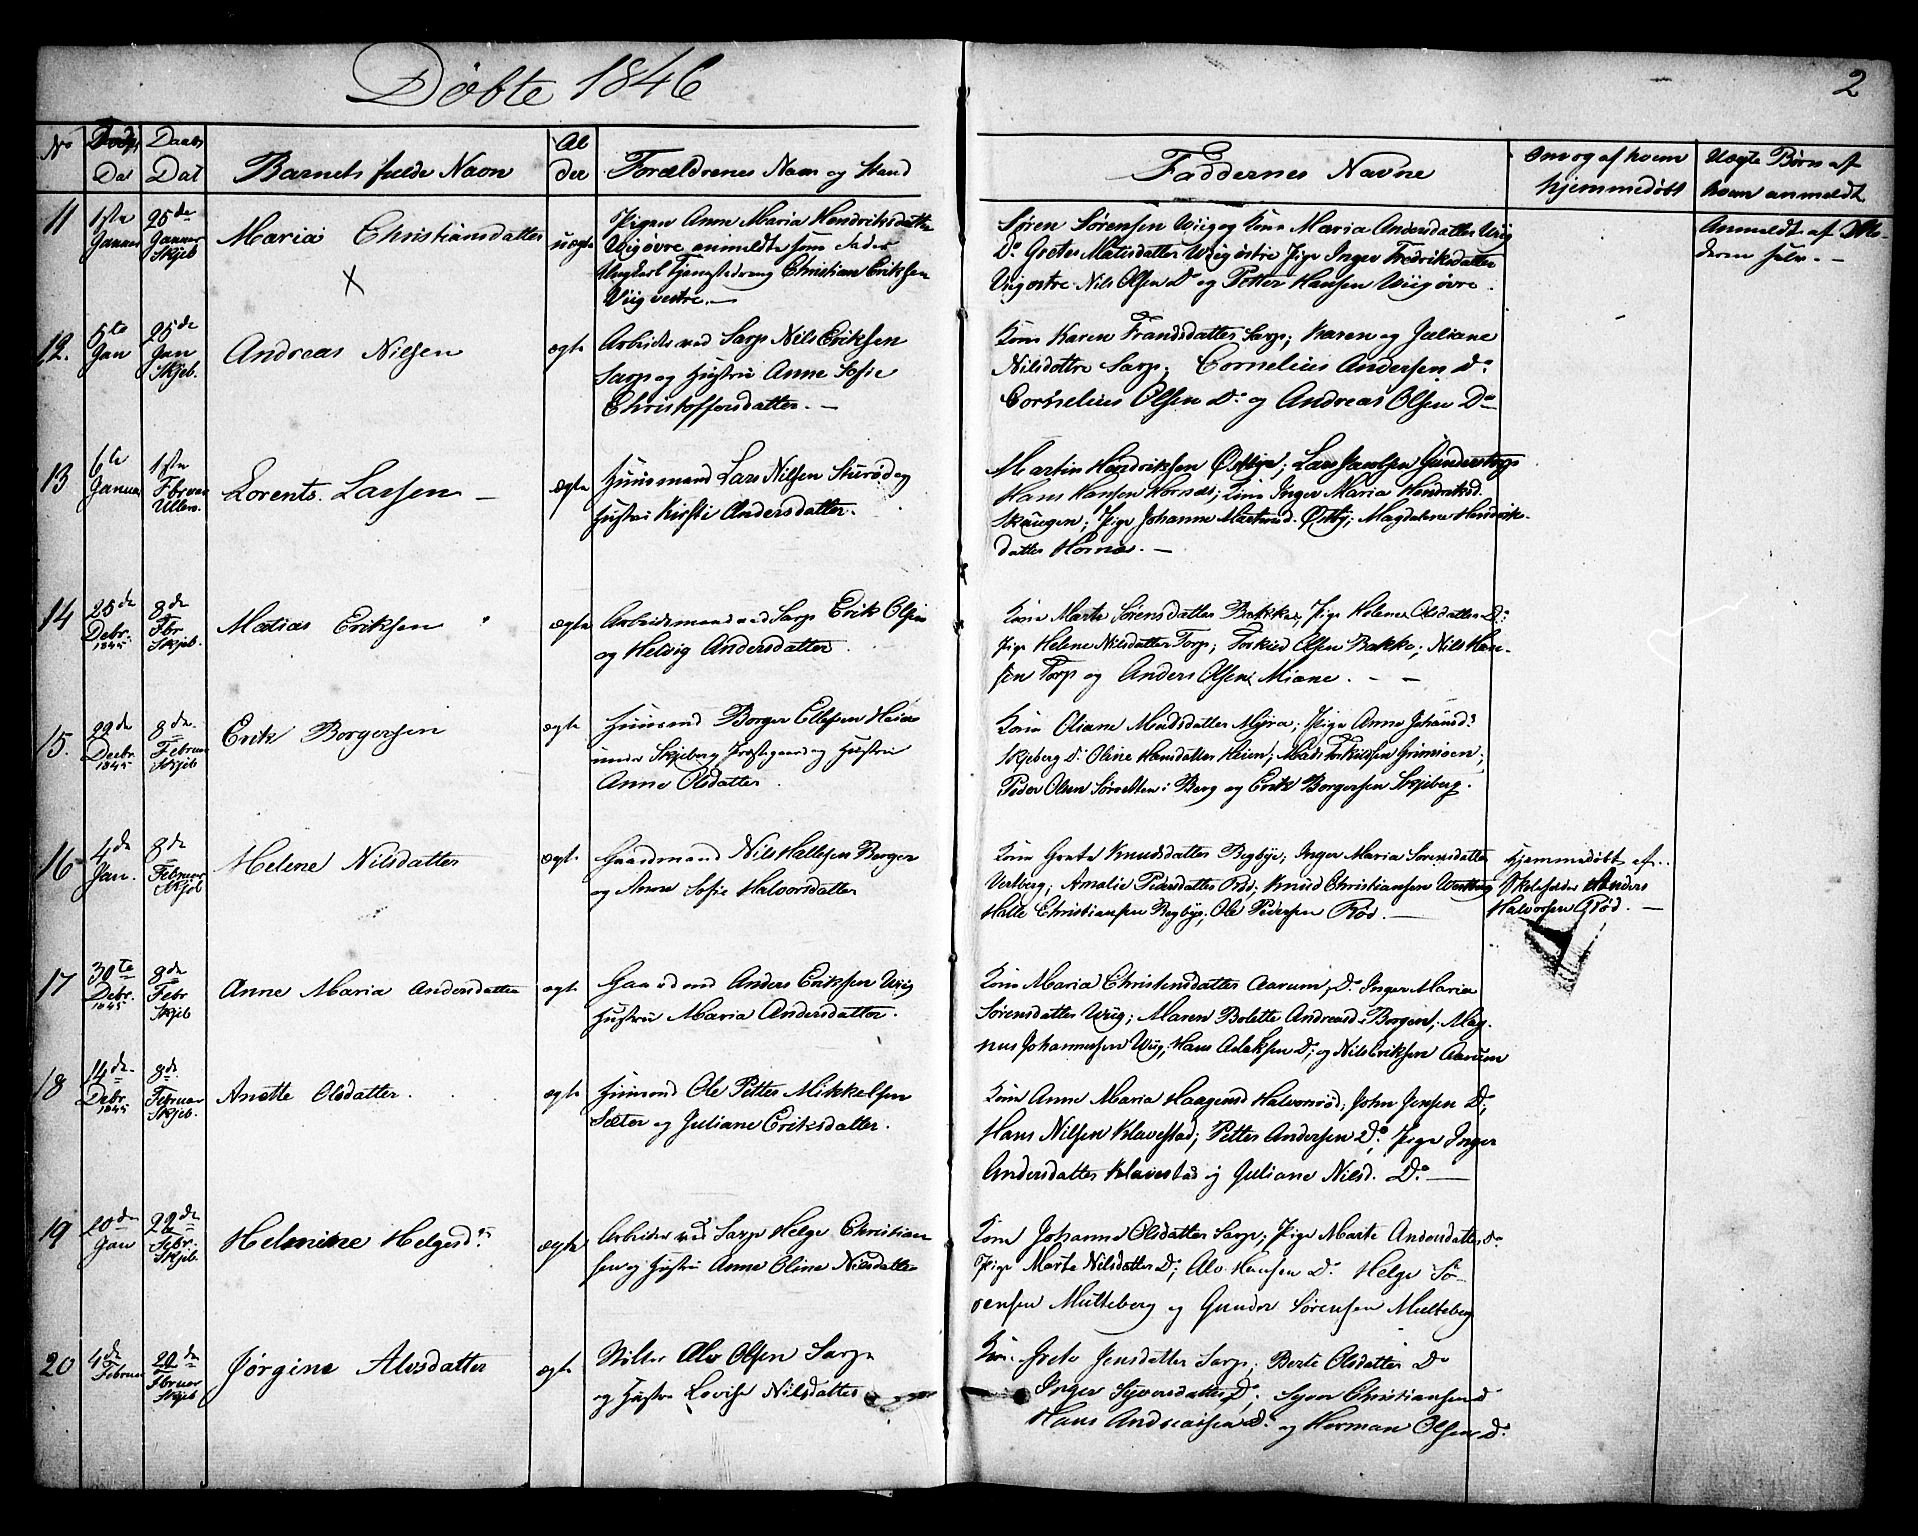 Døbte 1846
2
No
Føds Dat
Daabs Dat
Barnets fulde Navn
Alder
Forældrenes Navn og Stand
Faddernes Navne
Om og af hvem hjemmedøbt
Uægte Børn af hvem anmeldt
11
1ste Januar
25de Januar Skjeb
Maria Christiansdatter
X
uægte
Pigen Anne Maria Hendriksdatter
Wiigøvre anmeldte som Fader
Ungkarl Tjenestedreng Christian Eriksen
Viig vestre. —
Søren Sørensen Wiig og Kone Maria Andersdatter Wiig
Do Grete Matisdatter Wiig østre Pige Inger Fredriksdatter
Viig ostre Nils Olsen Do og Petter Hansen Wiigøvre.
Anmeldt af Mo-
deren selv. —
12.
5te Jan
25de Jan Skjeb.
Andreas Nilsen
ægte
Arbeider ved Sarp Nils Eriksen
Sarp og Hustru Anne Sofie
Christoffersdatter. —
Kone Karen Frandsdatter Sarp; Karen og Juliane
Nilsdøttre Sarp; Cornelius Andersen Do
Cornelius Olsen Do og Andreas Olsen Do
13
6te Januar
1ste Fbruar Ullerø.
Lorents Larsen —
ægte
Huusmand Lars Nilsen Sturød og
Hustru Kirsti Andersdatter.
Martin Hendriksen Østbye; Lars Jacobsen Gunderstorp
Hans Hansen Hornæs; Kone Inger Maria Hendriksd.
Skaugen; Pige Johanne Martinsd. Østby; Magdalene Hendriks-
datter Hornæs. —
14
25de Debr. 1845
8de Fbr Skjeb.
Matias Eriksen
ægte
Arbeidsmand ved Sarp Erik Olsen
og Helvig Andersdatter.
Kone Marte Sørensdatter Bakke, Pige Helene Olsdatter Do
Pige Helene Nilsdatter Torp; Torkild Olsen Bakke; Nils Han-
sen Torp og Anders Olsen Miane. — —
15.
22de Decbr. 1845
8de Februar Skjeb
Erik Borgersen
ægte
Huusmand Borger Ellefsen Heien
under Skjeberg Præstegaard og Hustru
Anne Olsdatter.
Kone Oliane Madsdatter Myra; Pige Anne Johansd.
Skjeberg Do Oline Hansdatter Heien; Mads Torkildsen Grimsøen;
Peder Olsen Sørvelten i Berg og Erik Borgersen Skjeberg.
16
4de Jan.
8de Februar Skjeb
Helene Nilsdatter
ægte
Gaardmand Nils Hallesen Borger
og Anne Sofie Halvorsdatter
Kone Grete Knudsdatter Begbye; Inger Maria Sørensdatter
Vestberg; Amalie Pedersdatter Rød; Knud Christiansen Westberg
Halle Christiansen Begbye, Ole Pedersen Rød. —
Hjemmedøbt af
Skoleholder Anders
Halvorsen Rød. —
17
30te Debr. 1845
8de Febr Skjeb
Anne Maria Andersdatter
ægte
Gaardmd Anders Eriksen Wiig
Hustru Maria Andersdatter.
Kone Maria Christensdatter Aarum, Do Inger Maria
Sørensdatter Wiig; Maren Bolette Andreasd. Borgen; Mag-
nus Johannesen Wiig; Hans Aslaksen Do; og Nils Eriksen Aarum
18
14de Debr. 1845
8de Februar Skjeb.
Anette Olsdatter.
ægte
Huusmand Ole Petter Mikkelsen
Sæter og Juliane Eriksdatter.
Kone Anne Maria Haagensd Halvorsrød; John Jensen Do;
Hans Nilsen Klavestad; Petter Andersen Do; Pige Inger
Andersdatter Klavestad og Juliane Nilsd. Do —
19
20de Jan
22de Febr. Skjeb.
Helmine Helgesdr
ægte
Arbeider ved Sarp Helge Christian
sen og Hustru Anne Oline Nilsdatter
Kone Johanne Olsdatter Sarp; Pige Marte Andersdatter Do
Pige Marte Nilsdatter Do; Alv Hansen Do Helge Sø-
rensen Multeberg og Gunder Sørensen Multeberg
20
4de Februar
22de Fbruar Skjeb
Jørgine Alvsdatter
ægte
Alv Olsen Sarp
og Hustru Lovise Nilsdatter
Kone Grete Jensdatter Sarp; Berte Olsdatter Do
Inger Syversdatter Do; Syver Christiansen Do
Hans Andreassen Do og Herman Olsen Do